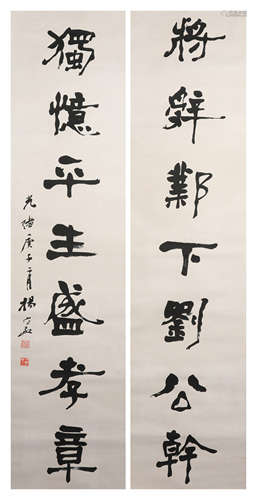 將辭鄴下劉公幹
獨憶平生盛孝章
光緒庚子二月楊守敬